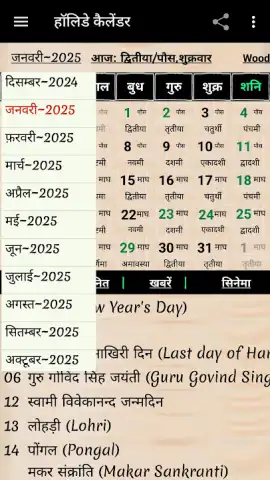 हॉलिडे कैलेंडर
जनवरी~2025 आज: द्वितीया/पौस,शुक्रवार Wood
दिसम्बर~2024
जनवरी~2025
फ़रवरी~2025
मार्च~2025
अप्रैल~2025
मई~2025
जून~2025
जुलाई~2025
अगस्त~2025
सितम्बर~2025
अक्टूबर~2025
बुध गुरु शुक्र शनि
1 पौस 2 पौस 3 पौस 4 पौस
द्वितीया तृतीया चतुर्थी पंचमी
8 पौस 9 पौस 10 पौस 11 पौस
नवमी दशमी एकादशी द्वादशी
15 माघ 16 माघ 17 माघ 18 माघ
द्वितीया तृतीया चतुर्थी पंचमी
22 माघ 23 माघ 24 माघ 25 माघ
अष्टमी नवमी दशमी एकादशी
29 माघ 30 माघ 31 माघ 1 माघ
अमावस्या द्वितीया तृतीया तृतीया
खबरें सिनेमा
w Year's Day)
ाखिरी दिन (Last day of Har
06 गुरु गोविंद सिंह जयंती (Guru Govind Sing
12 स्वामी विवेकानन्द जन्मदिन
13 लोहड़ी (Lohri)
14 पोंगल (Pongal)
मकर संक्रांति (Makar Sankranti)